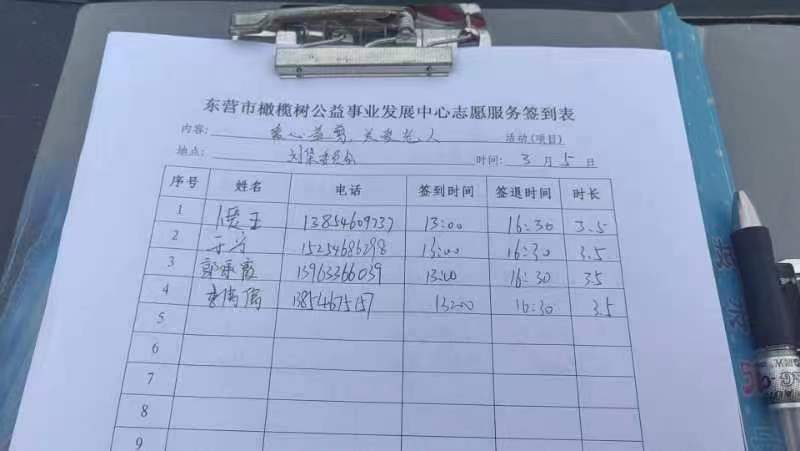 东营市橄榄树公益事业发展中心志愿服务签到表
内容: 爱心益剪,关爱老人 活动(项目)
地点: 刘集委员会 时间: 3月5日
序号 姓名 电话 签到时间 签退时间 时长
1 13854609737 13:00 16:30 3.5
2 15254686298 13:00 16:30 3.5
3 郭承霞 13963366039 13:00 16:30 3.5
4 13854675157 13:00 16:30 3.5
5
6
7
8
9